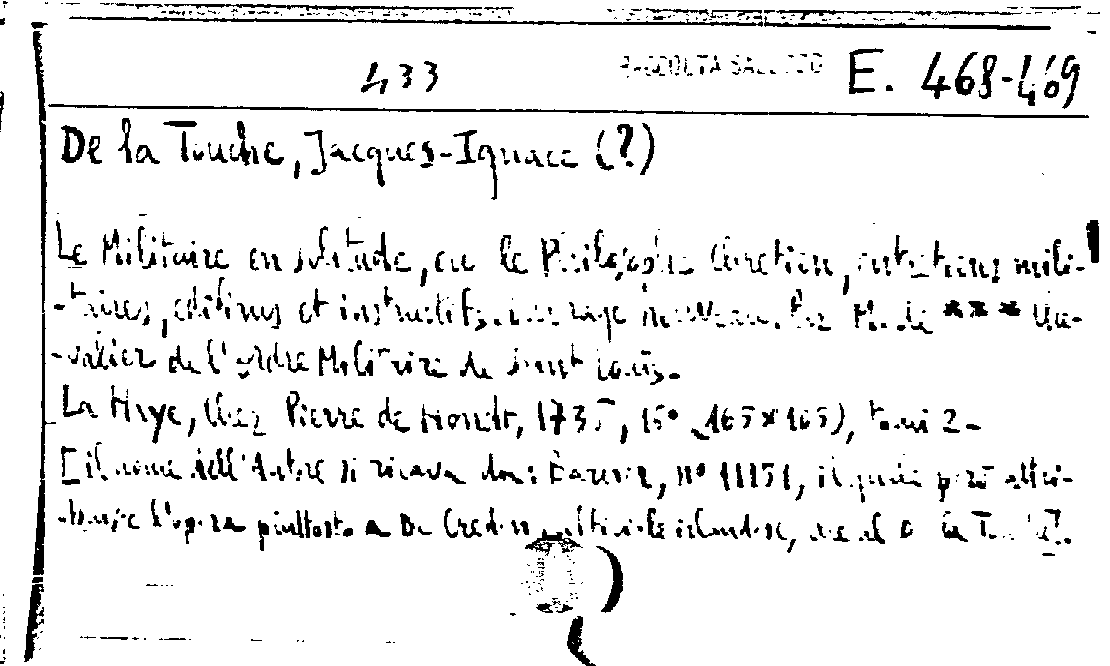 433 RACCOLTA SALUZZO E. 468-469
De la Touche, Jacques-Ignace (?)
Le Militaire en solitude, ou le Philosophe Chrétien, entretiens mili-
-taires, édifians et instructifs. Ouvrage nouveau. Par M. de *** Che-
-valier de l'Ordre Militaire de Saint Louis.
La Haye, Chez Pierre de Hondt, 1735, (165×105), tomi 2-
[il nome dell'Autore si ricava dal Barbier, n° 11151, il quale però attri-
-buisce l'opera piuttosto a De ufficiale irlandese, che al De la Touche].